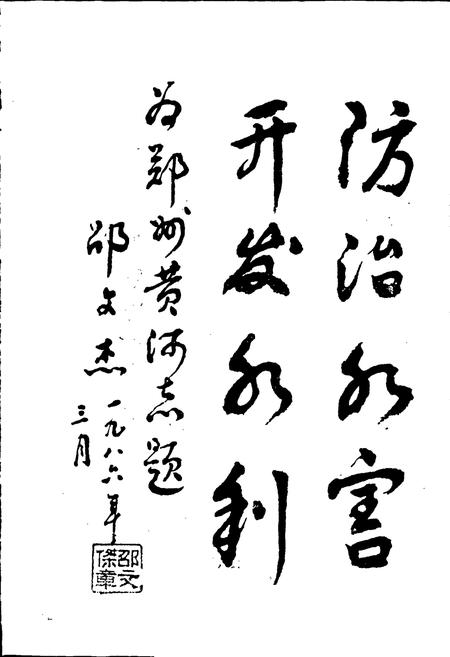 防治水害
开发水利
为郑州黄河志题
邵文杰 一九八六年
三月
邵文
傑章